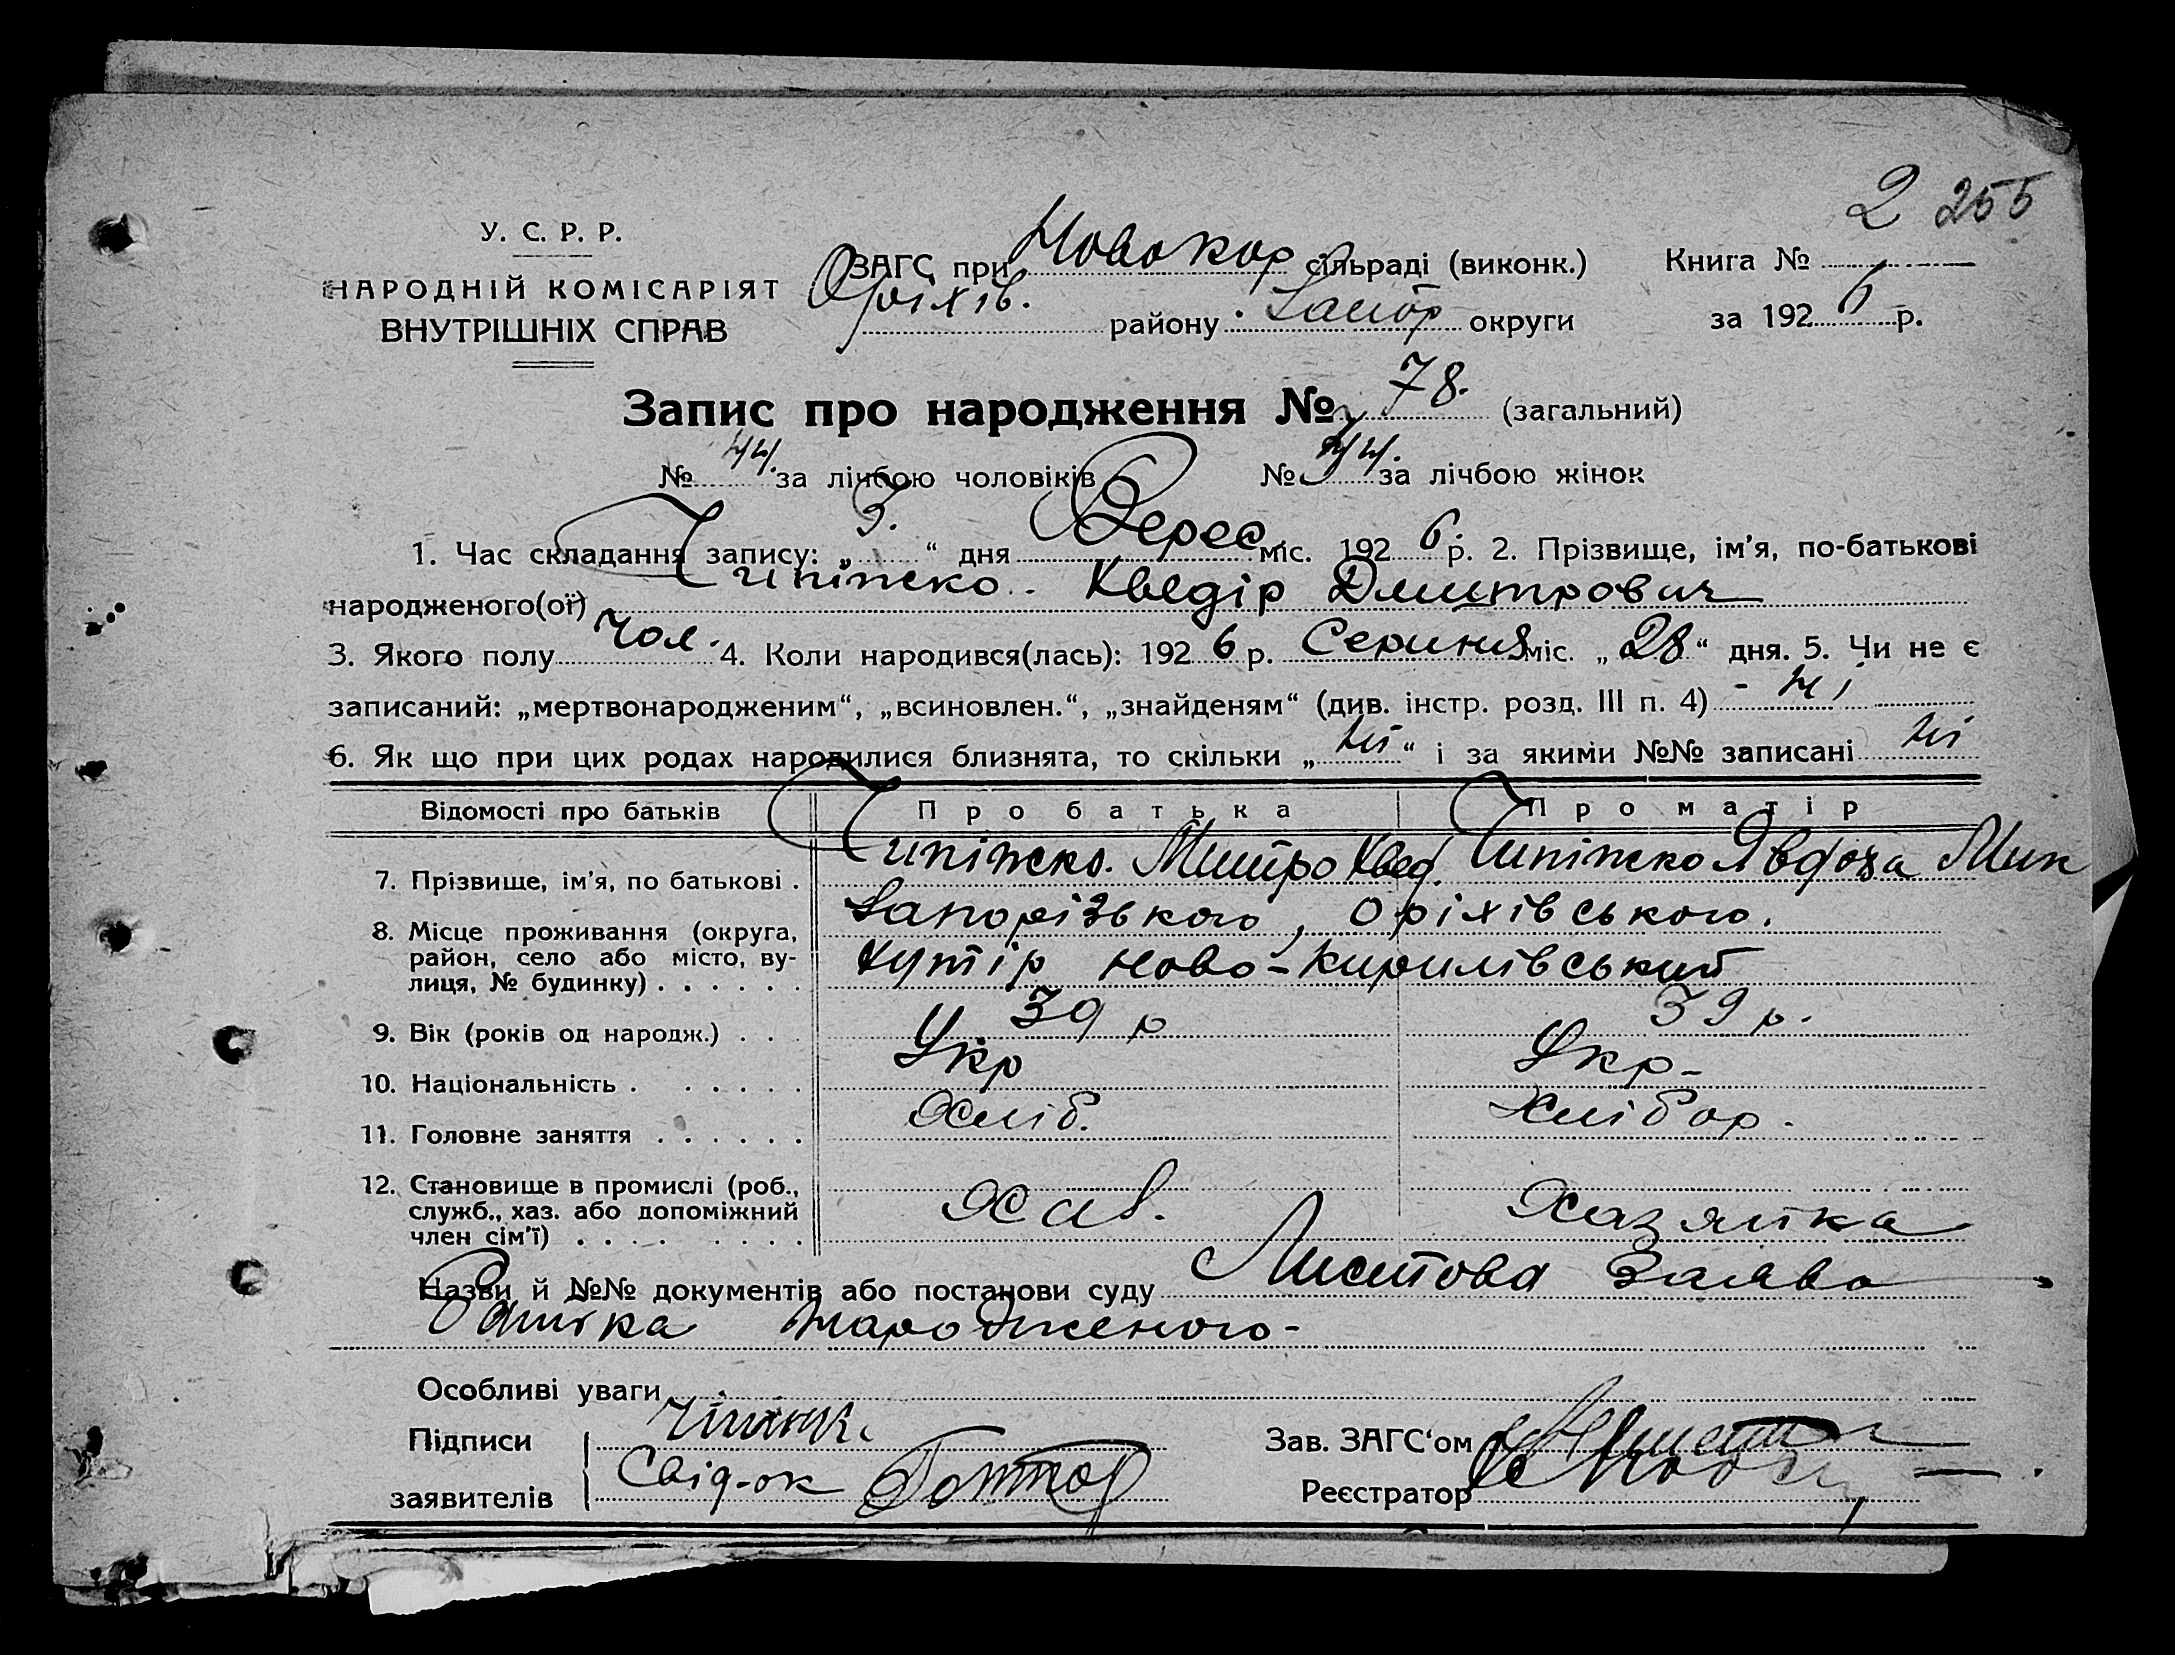 2 255
У. С. Р. Р.
НАРОДНІЙ КОМІСАРІЯТ
ВНУТРІШНІХ СПРАВ
ЗАГС при Новокар сільраді (виконк.) Книга №
Оріхів. району Запор округи за 1926 р.
Запис про народження № 78. (загальний)
№ 44. за лічбою чоловіків № 34. за лічбою жінок
1. Час складання запису: „3.“ дня Верес міс. 1926 р. 2. Прізвище, ім’я, по-батькові
народженого(ої) Чипіжко. Хведір Дмитрович
3. Якого полу Чол. 4. Коли народився(лась): 1926 р. Серпня міс. „28“ дня. 5. Чи не є
записаний: „мертвонародженим“, „всиновлен.“, „знайденям“ (див. інстр. розд. III п. 4) - ні
6. Як що при цих родах народилися близнята, то скільки „ні“ і за якими №№ записані ні
Відомості про батьків Про батька Про матір
7. Прізвище, ім’я, по батькові . Чипіжко. Митро Хвед. Чипіжко Явдоха Мик
8. Місце проживання (округа, Запорізького, Оріхівського.
район, село або місто, ву-
лиця, № будинку) . . . . . . Хутір Ново-Кирилівський
9. Вік (років од народж.) . . . 39 р 39 р.
10. Національність . . . . . . Укр Укр-
11. Головне заняття . . . . . . Хліб. Хлібор.
12. Становище в промислі (роб.,
служб., хаз. або допоміжний Хазяйка
член сім’ї) . . . . . . . .
Назви й №№ документів або постанови суду Заява
народженого-
Особливі уваги
Підписи Зав. ЗАГС‘ом
заявителів Свідок Реєстратор